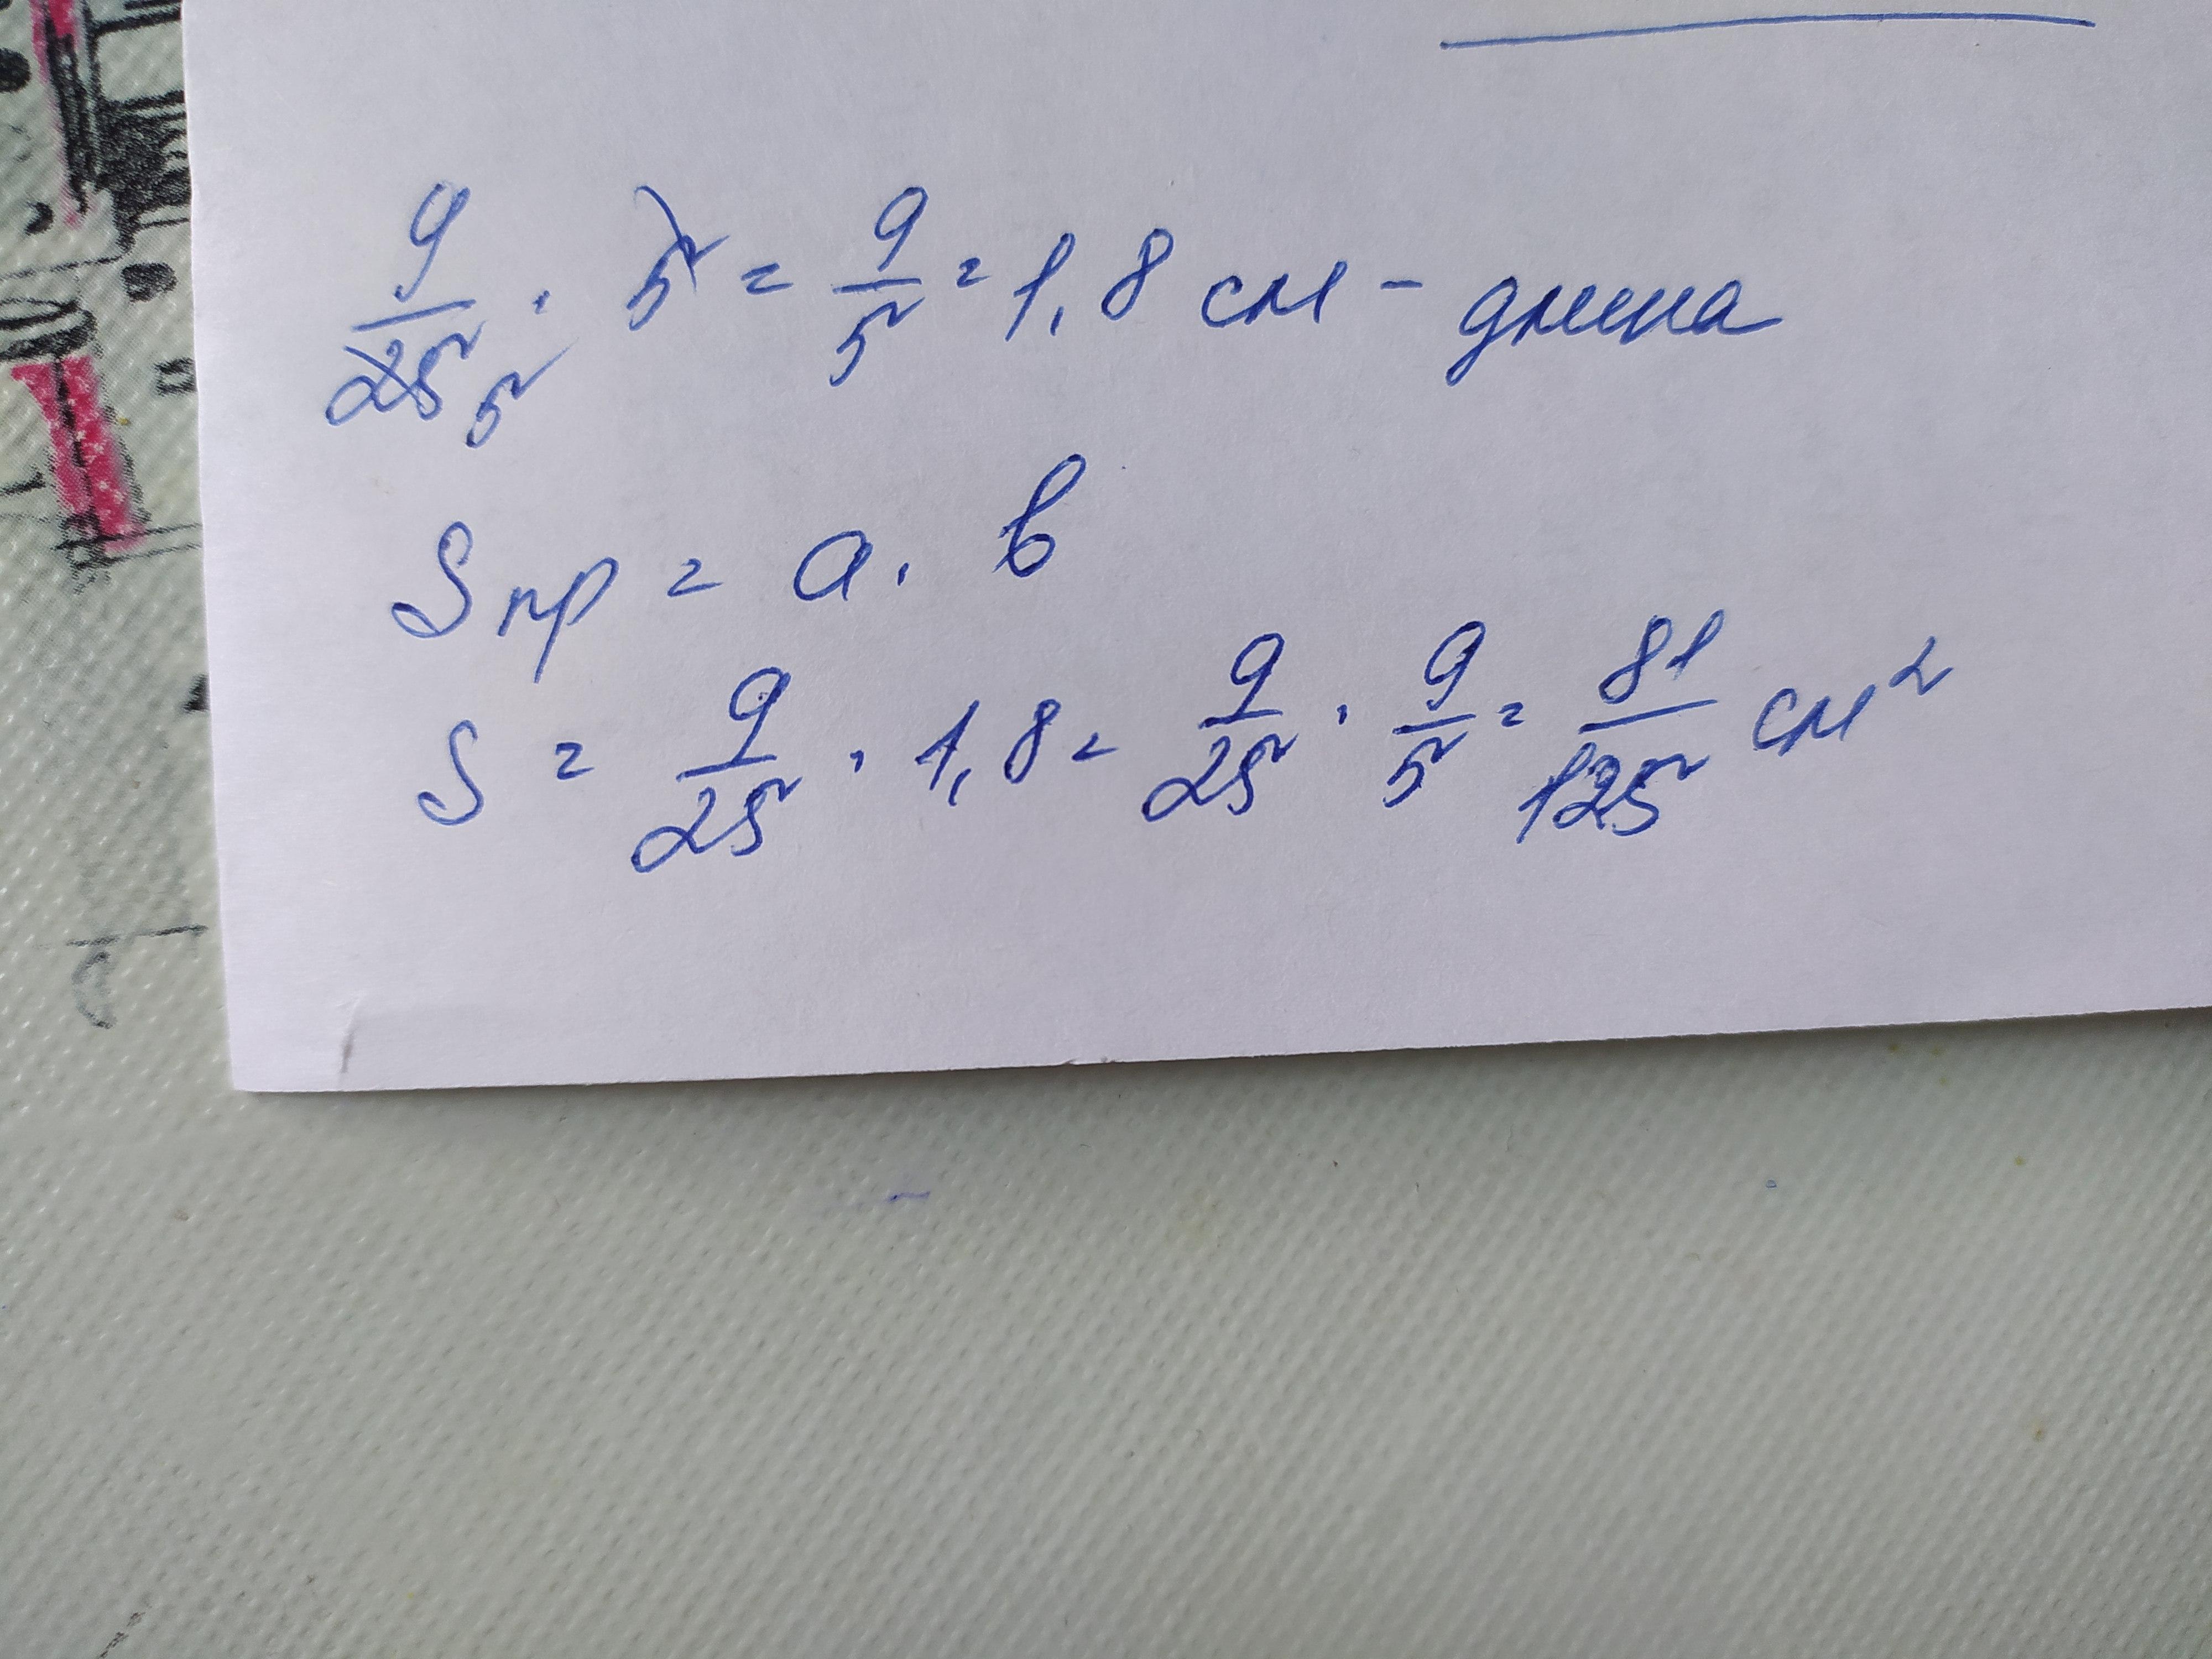 9/25 5 · 5 = 9/5 = 1,8 см - длина
Sпр = a · b
S = 9/25 · 1,8 = 9/25 · 9/5 = 81/125 см²